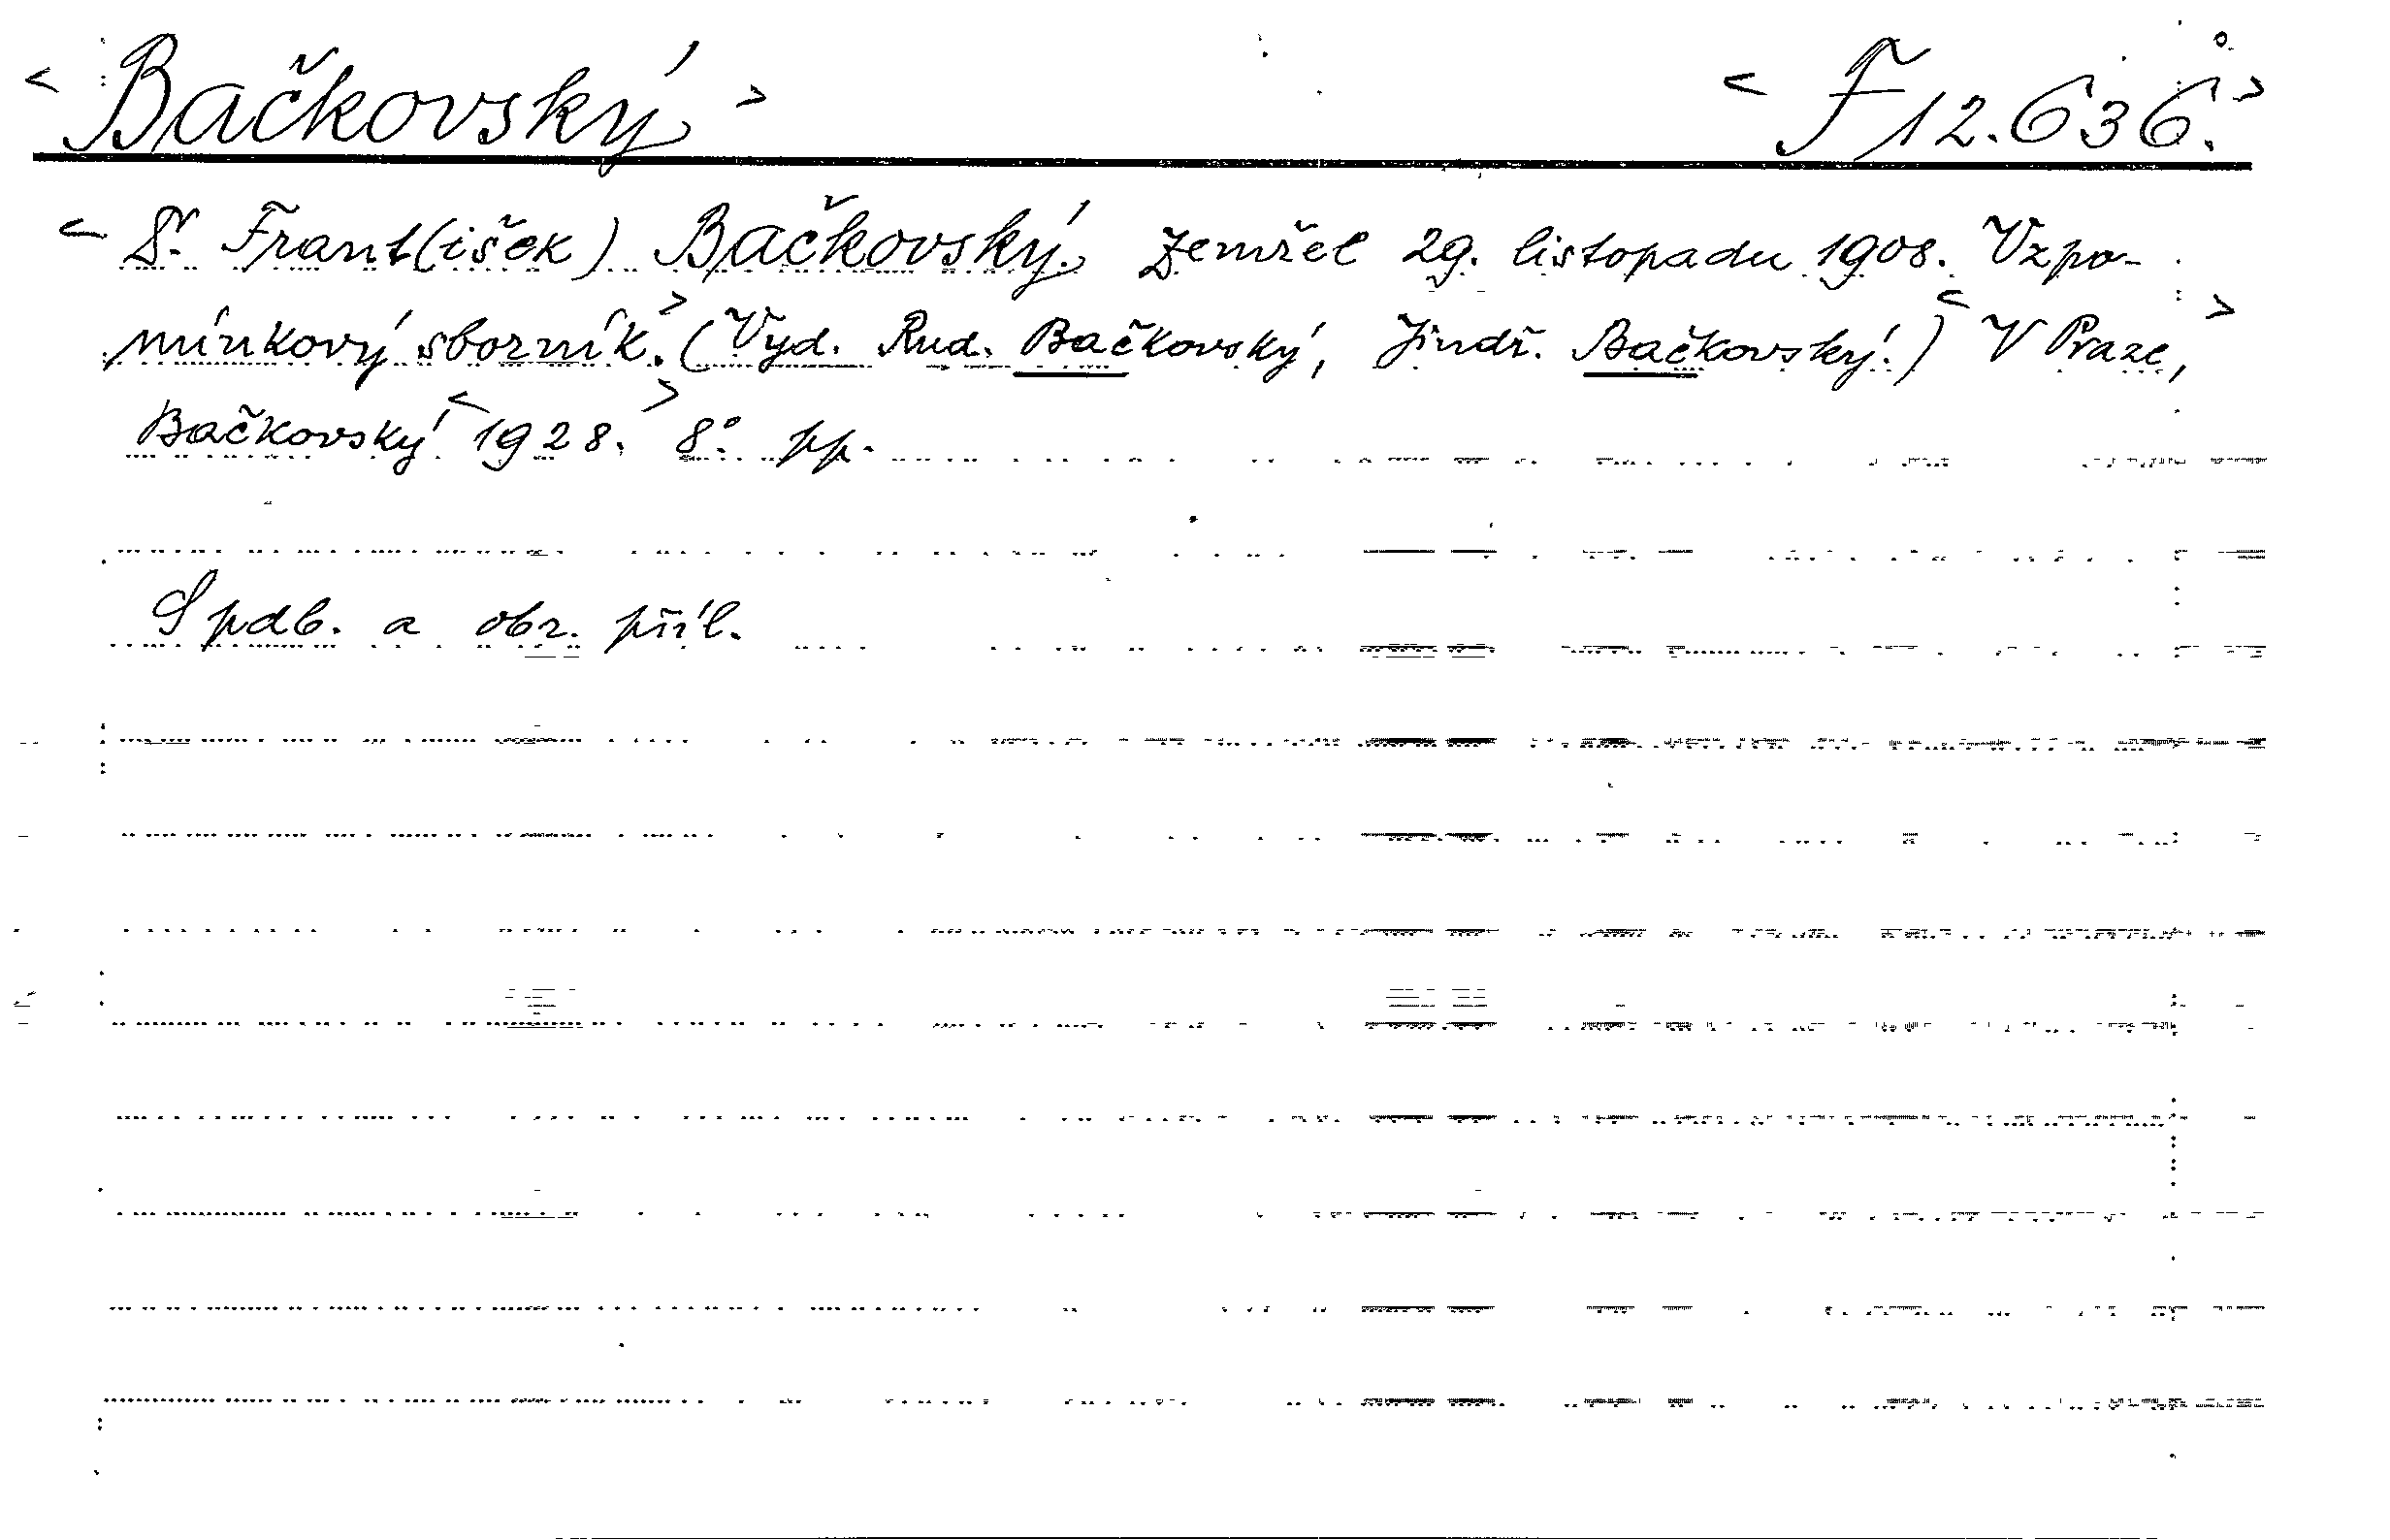 < Bačkovský > < F 12.636. >
< Dr. Frant(išek) Bačkovský. Zemřel 29. listopadu 1908. Vzpo-
mínkový sborník. > (Vyd. Rud. Bačkovský, Jindř. Bačkovský.) < V Praze, >
Bačkovský < 1928. > 8° pp.
S pdb. a obr. příl.